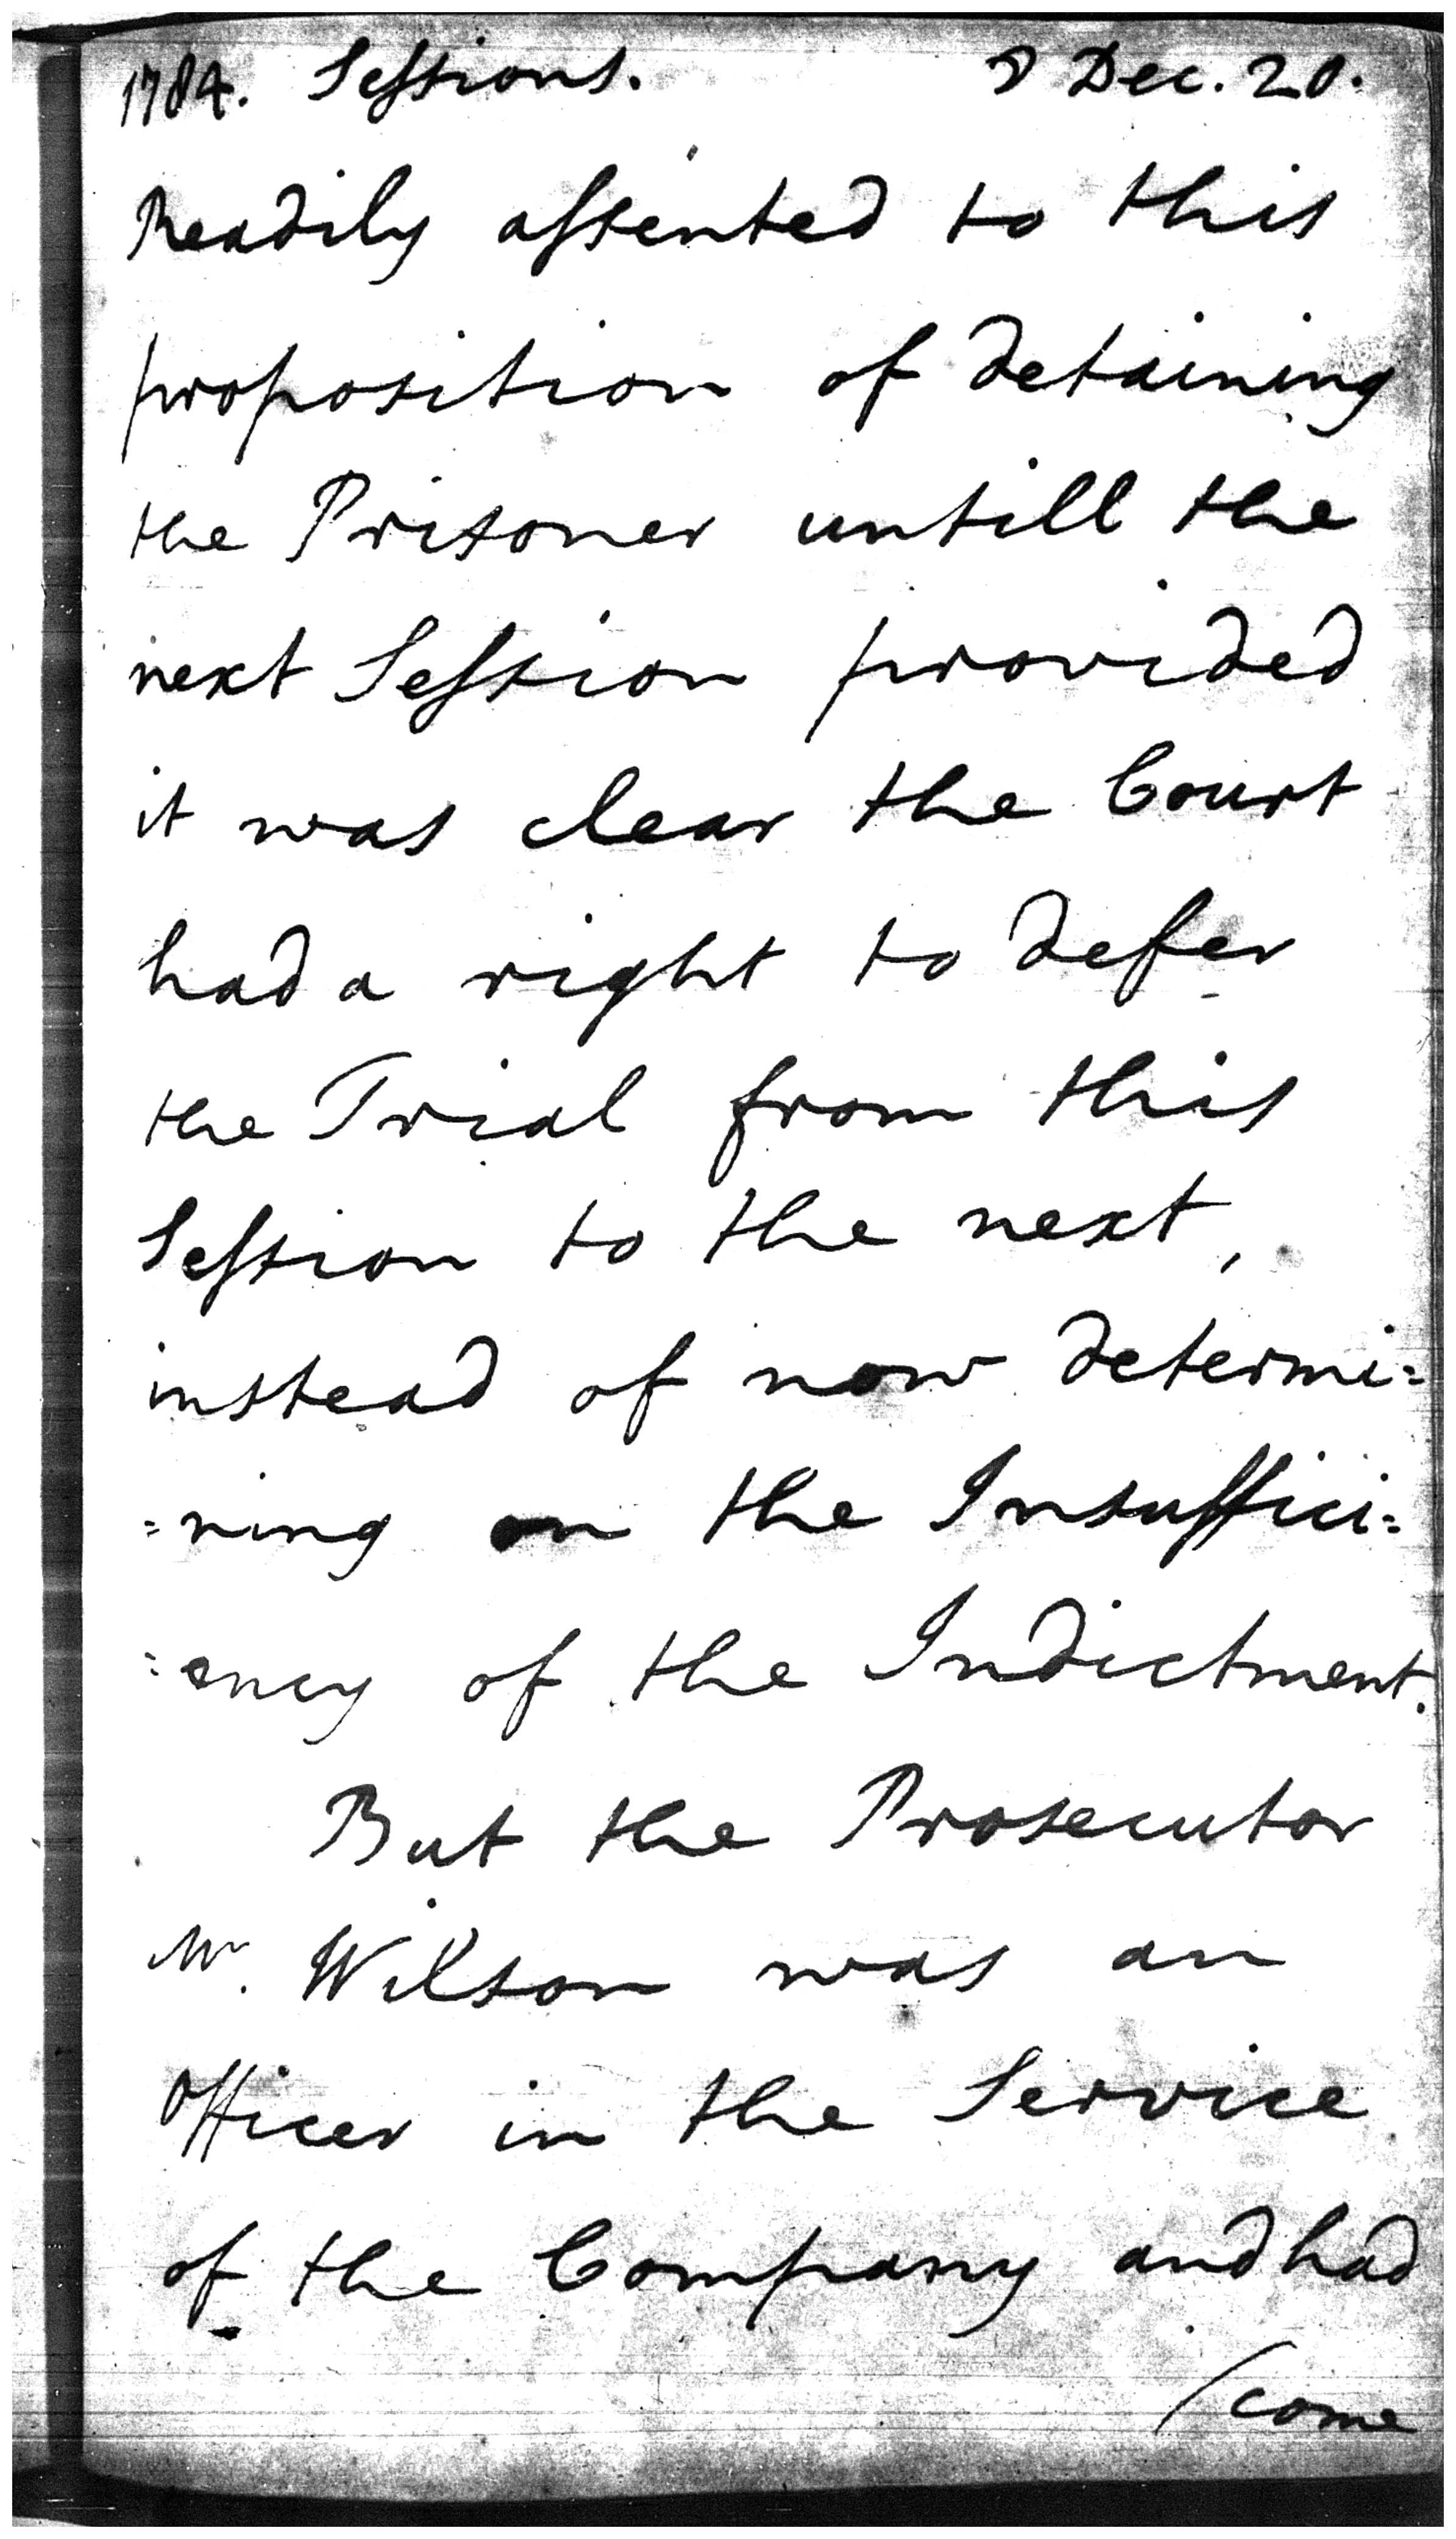 1784. Sessions. 8 Dec. 20.
Readily assented to this
proposition of detaining
the Prisoner untill the
next Session provided
it was clear the Court
had a right to defer
the Trial from this
Session to the next,
instead of now determi=
=ning on the Insuffici=
=ency of the Indictment.
But the Prosecutor
Mr. Wilson was an
Officer in the Service
of the Company and had
(come